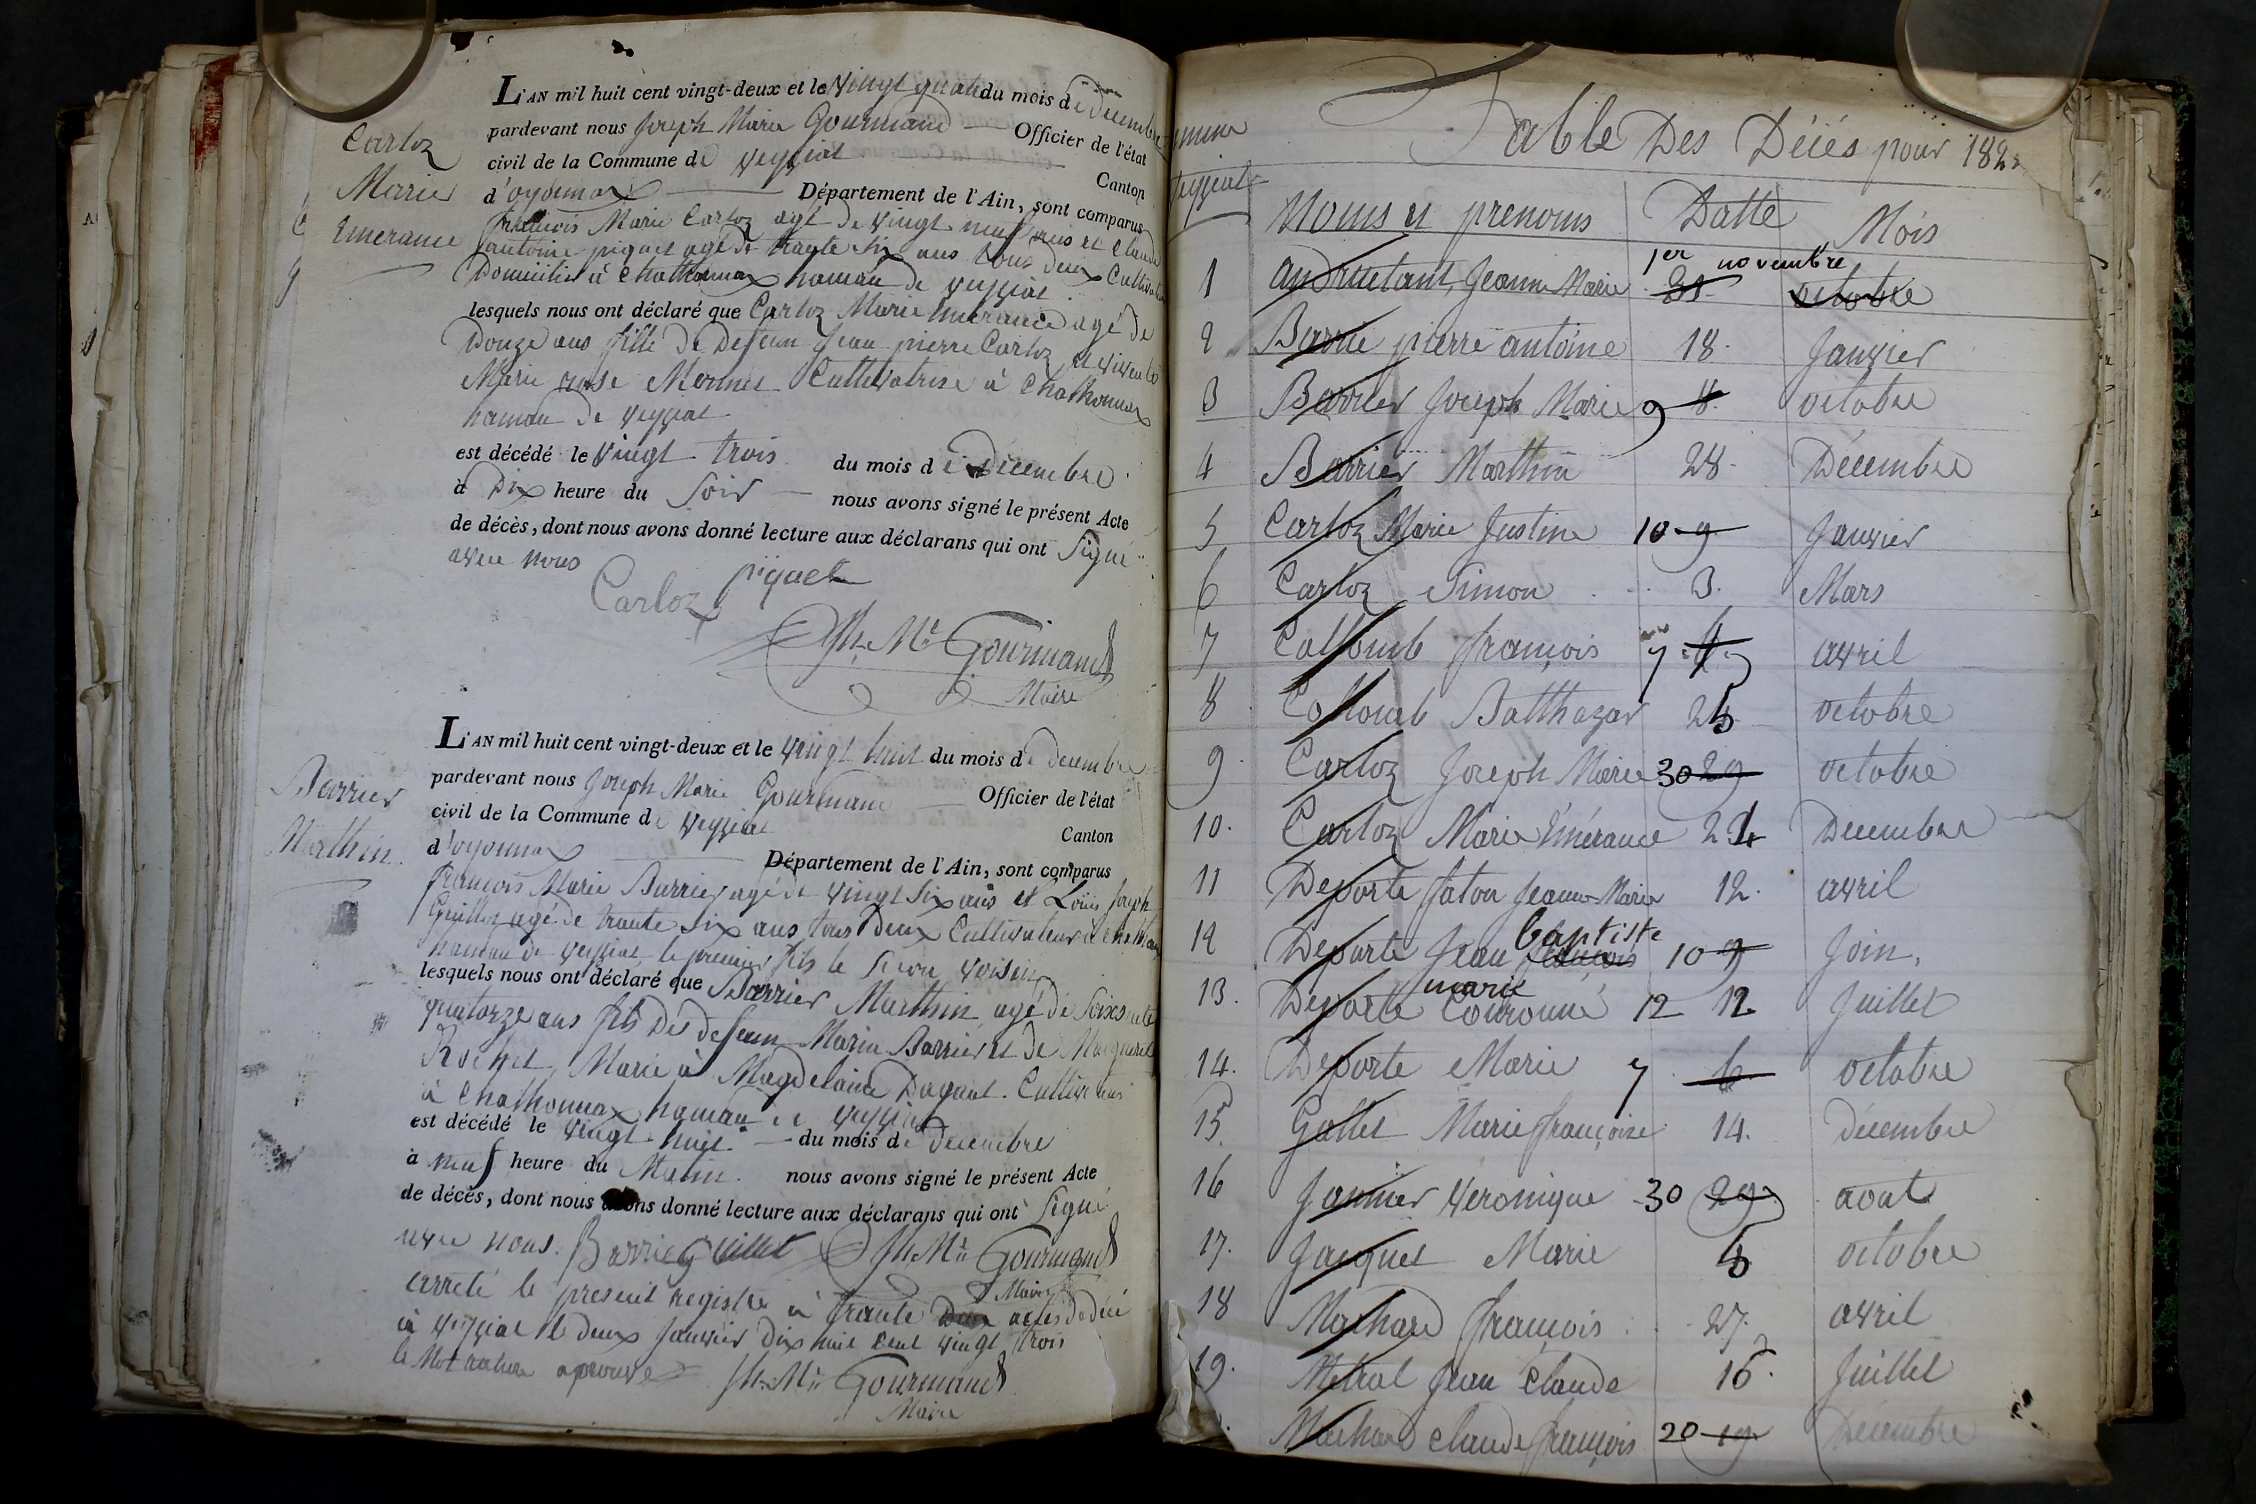 L'AN mil huit cent vingt-deux et le vingt quatre du mois de decembre
pardevant nous Joseph Marie Gourmand Officier de l'état
civil de la Commune de veyziat Canton
d'oyonnax Département de l'Ain, sont comparus
Carloz
Marie
Emerance
françois Marie Carloz agé de vingt neuf ans et Claude
antoine piquet agé de trante six ans tous deux Cultivateur
Domicilié à Chathonnax hamau de veyziat
lesquels nous ont déclaré que Carloz Marie Emerance agé de
Douze ans fille de Defeun Jean pierre Carloz et vivente
Marie rose Monnet Cultivatrise à Chathonnax
hamau de veyziat
est décédé le vingt trois du mois de Décembre
à Dix heure du Soir nous avons signé le présent Acte
de décès, dont nous avons donné lecture aux déclarans qui ont Signé
avec nous
Carloz piquet
Jh. Mie Gourmand
Maire
L'AN mil huit cent vingt-deux et le vingt huit du mois de decembre
pardevant nous Joseph Marie Gourmand Officier de l'état
civil de la Commune de veyziat Canton
d'oyonnax Département de l'Ain, sont comparus
Barrier
Marthin
françois Marie Barrier agé de vingt six ans et Louis Joseph
Guillot agé de trante six ans tous deux Cultivateur à
hamau de veyziat le premier fils le Segon voisin
lesquels nous ont déclaré que Barrier Marthin agé de Soixsante
quatorze ans fils de defeun Marin Barrier et de Marguerite
Rochet, Marié à Magdelaine Dagant. Cultivateur
à Chathonnax hamau de veyziat
est décédé le vingt huit du mois de decembre
à neuf heure du Matin. nous avons signé le présent Acte
de décès, dont nous avons donné lecture aux déclarans qui ont Signé
avec nous. Barrier Guillot Jh. Mie Gourmand
Maire
arreté le present registre à trante actes de déci
à veyziat le deux Janvier Dix huit cent vingt trois
le Mot rature aprouvé Jh. Mie Gourmand
Maire
Table Des Décés pour 182
veyziat
Noms et prenoms Datte Mois
1 andruetant Jeanne Marie 1er 31 novembre octobre
2 Barrie pierre antoine 18. Janvier
3 Barrier Joseph Marie 9 8. octobre
4 Barrier Marthin 28. Décembre
5 Carloz Marie Justine 10 9 Janvier
6 Carloz Simon 3. Mars
7 Collomb françois 7 avril
8 Collomb Balthazar 25 octobre
9. Carloz Joseph Marie 30 29 octobre
10. Carloz Marie Emérance 24 Decembre
11 Deporte faton Jeanne Marie 12. avril
12 Deporte Jean françois baptiste 10 9 Join,
13. Deporte marie Couronné 12 12 Juillet
14. Deporte Marie 7 6 octobre
15. Gallet Marie françoise 14. Décembre
16 Janier véronique 30 29 aout
17. Jacquet Marie 5 octobre
18 Machard françois 27. avril
19. Métral Jean Claude 16. Juillet
Machard Claude françois 20 19 Décembre